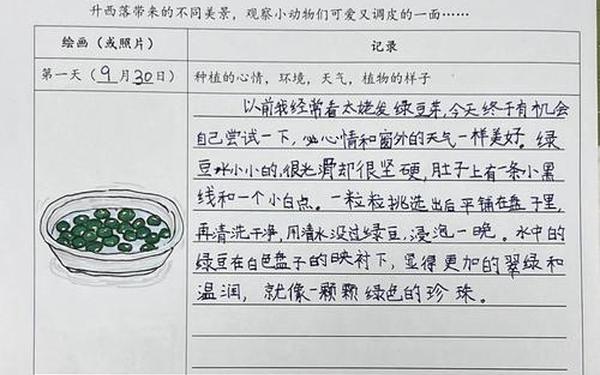 升西落带来的不同美景，观察小动物们可爱又调皮的一面……
绘画（或照片）
记录
第一天（9月30日）
种植的心情，环境，天气，植物的样子
以前我经常看太姥发绿豆芽，今天终于有机会
自己尝试一下，心情和窗外的天气一样美好。绿
豆小小的，很光滑却很坚硬，肚子上有一条小黑
线和一个小白点。一粒粒挑选出后平铺在盘子里，
再清洗干净，用清水没过绿豆，浸泡一晚。水中的
绿豆在白色盘子的映衬下，显得更加的翠绿和
温润，就像一颗颗绿色的珍珠。